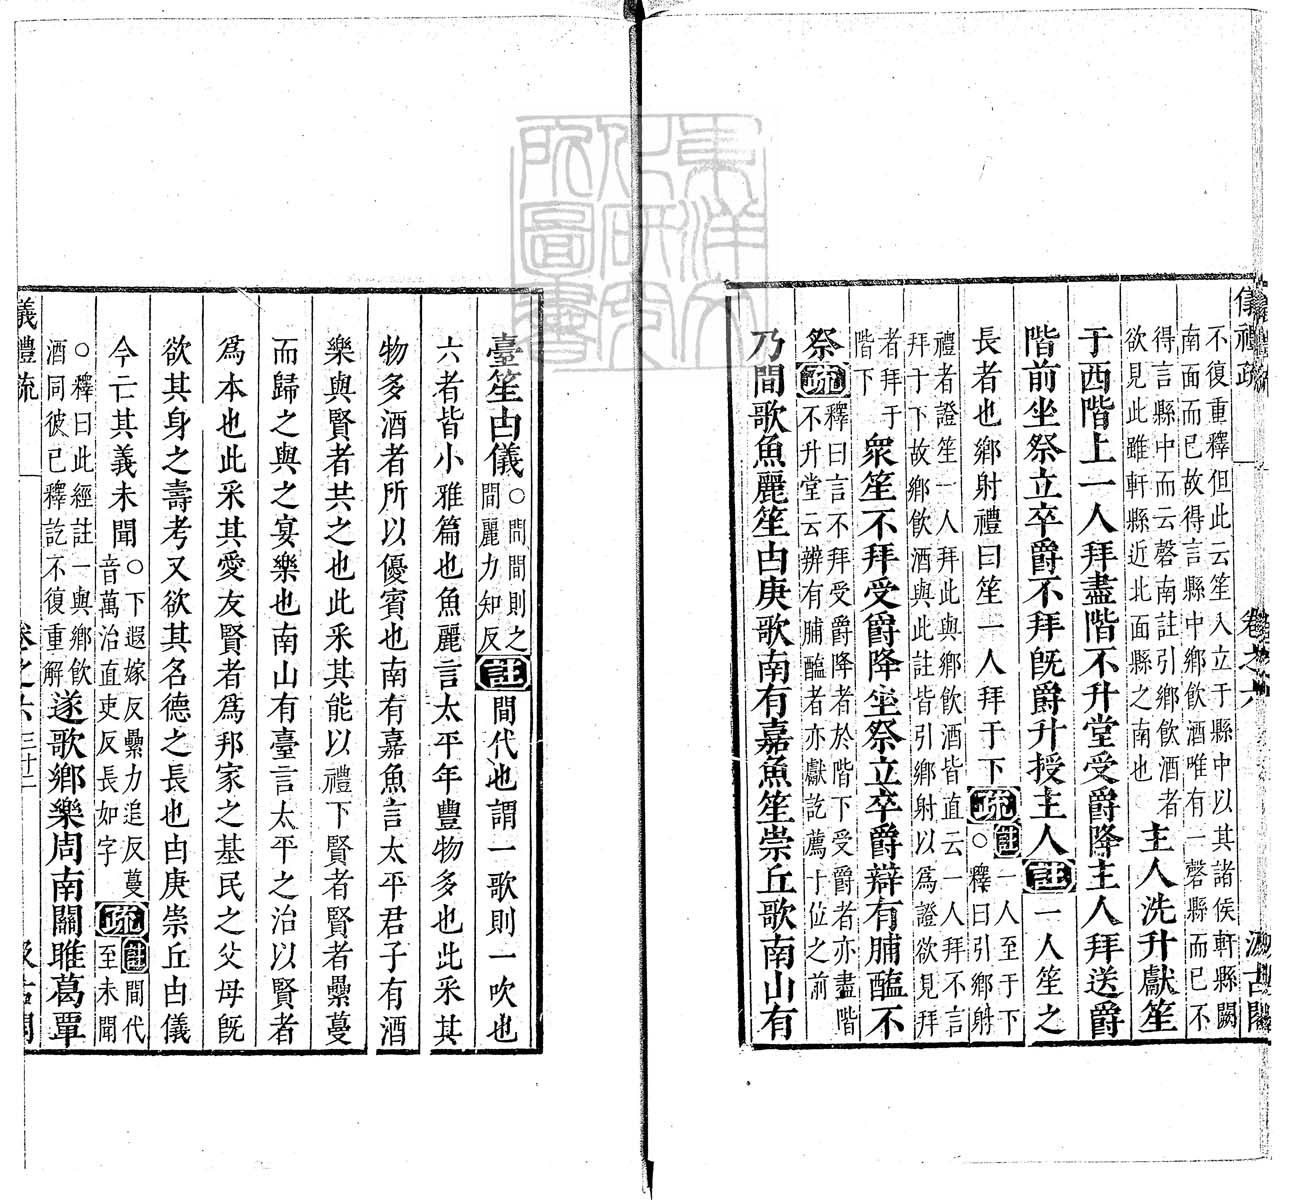 儀禮疏
卷之六
汲古閣
不復重釋但此云笙入立于縣中以其諸侯軒縣闕
南面而已故得言縣中鄉飲酒唯有一磬縣而已不
得言縣中而云磬南註引鄉飲酒者
欲見此雖軒縣近北面縣之南也
主人洗升獻笙
于西階上一人拜盡階不升堂受爵降主人拜送爵
階前坐祭立卒爵不拜既爵升授主人註一人笙之
長者也鄉射禮曰笙一人拜于下疏
註一人至于下
○釋曰引鄉射
禮者證笙一人拜此與鄉飲酒皆直云一人拜不言
拜于下故鄉飲酒與此註皆引鄉射以為證欲見拜
者拜于
階下
眾笙不拜受爵降坐祭立卒爵辯有脯醢不
祭疏
釋曰言不拜受爵降者於階下受爵者亦盡階
不升堂云辨有脯醢者亦獻訖薦于位之前
乃間歌魚麗笙由庚歌南有嘉魚笙崇丘歌南山有
臺笙由儀
○間間則之
間麗力知反
註間代也謂一歌則一吹也
六者皆小雅篇也魚麗言太平年豐物多也此采其
物多酒者所以優賓也南有嘉魚言太平君子有酒
樂與賢者共之也此采其能以禮下賢者賢者纍蔓
而歸之與之宴樂也南山有臺言太平之治以賢者
為本也此采其愛友賢者為邦家之基民之父母既
欲其身之壽考又欲其名德之長也由庚崇丘由儀
今亡其義未聞
○下遐嫁反纍力追反蔓
音萬治直吏反長如字
疏
註間代
至未聞
○釋曰此經註一與鄉飲
酒同彼已釋訖不復重解
遂歌鄉樂周南關雎葛覃
儀禮疏
卷之六
三十二
汲古閣
東洋文化研究所圖書